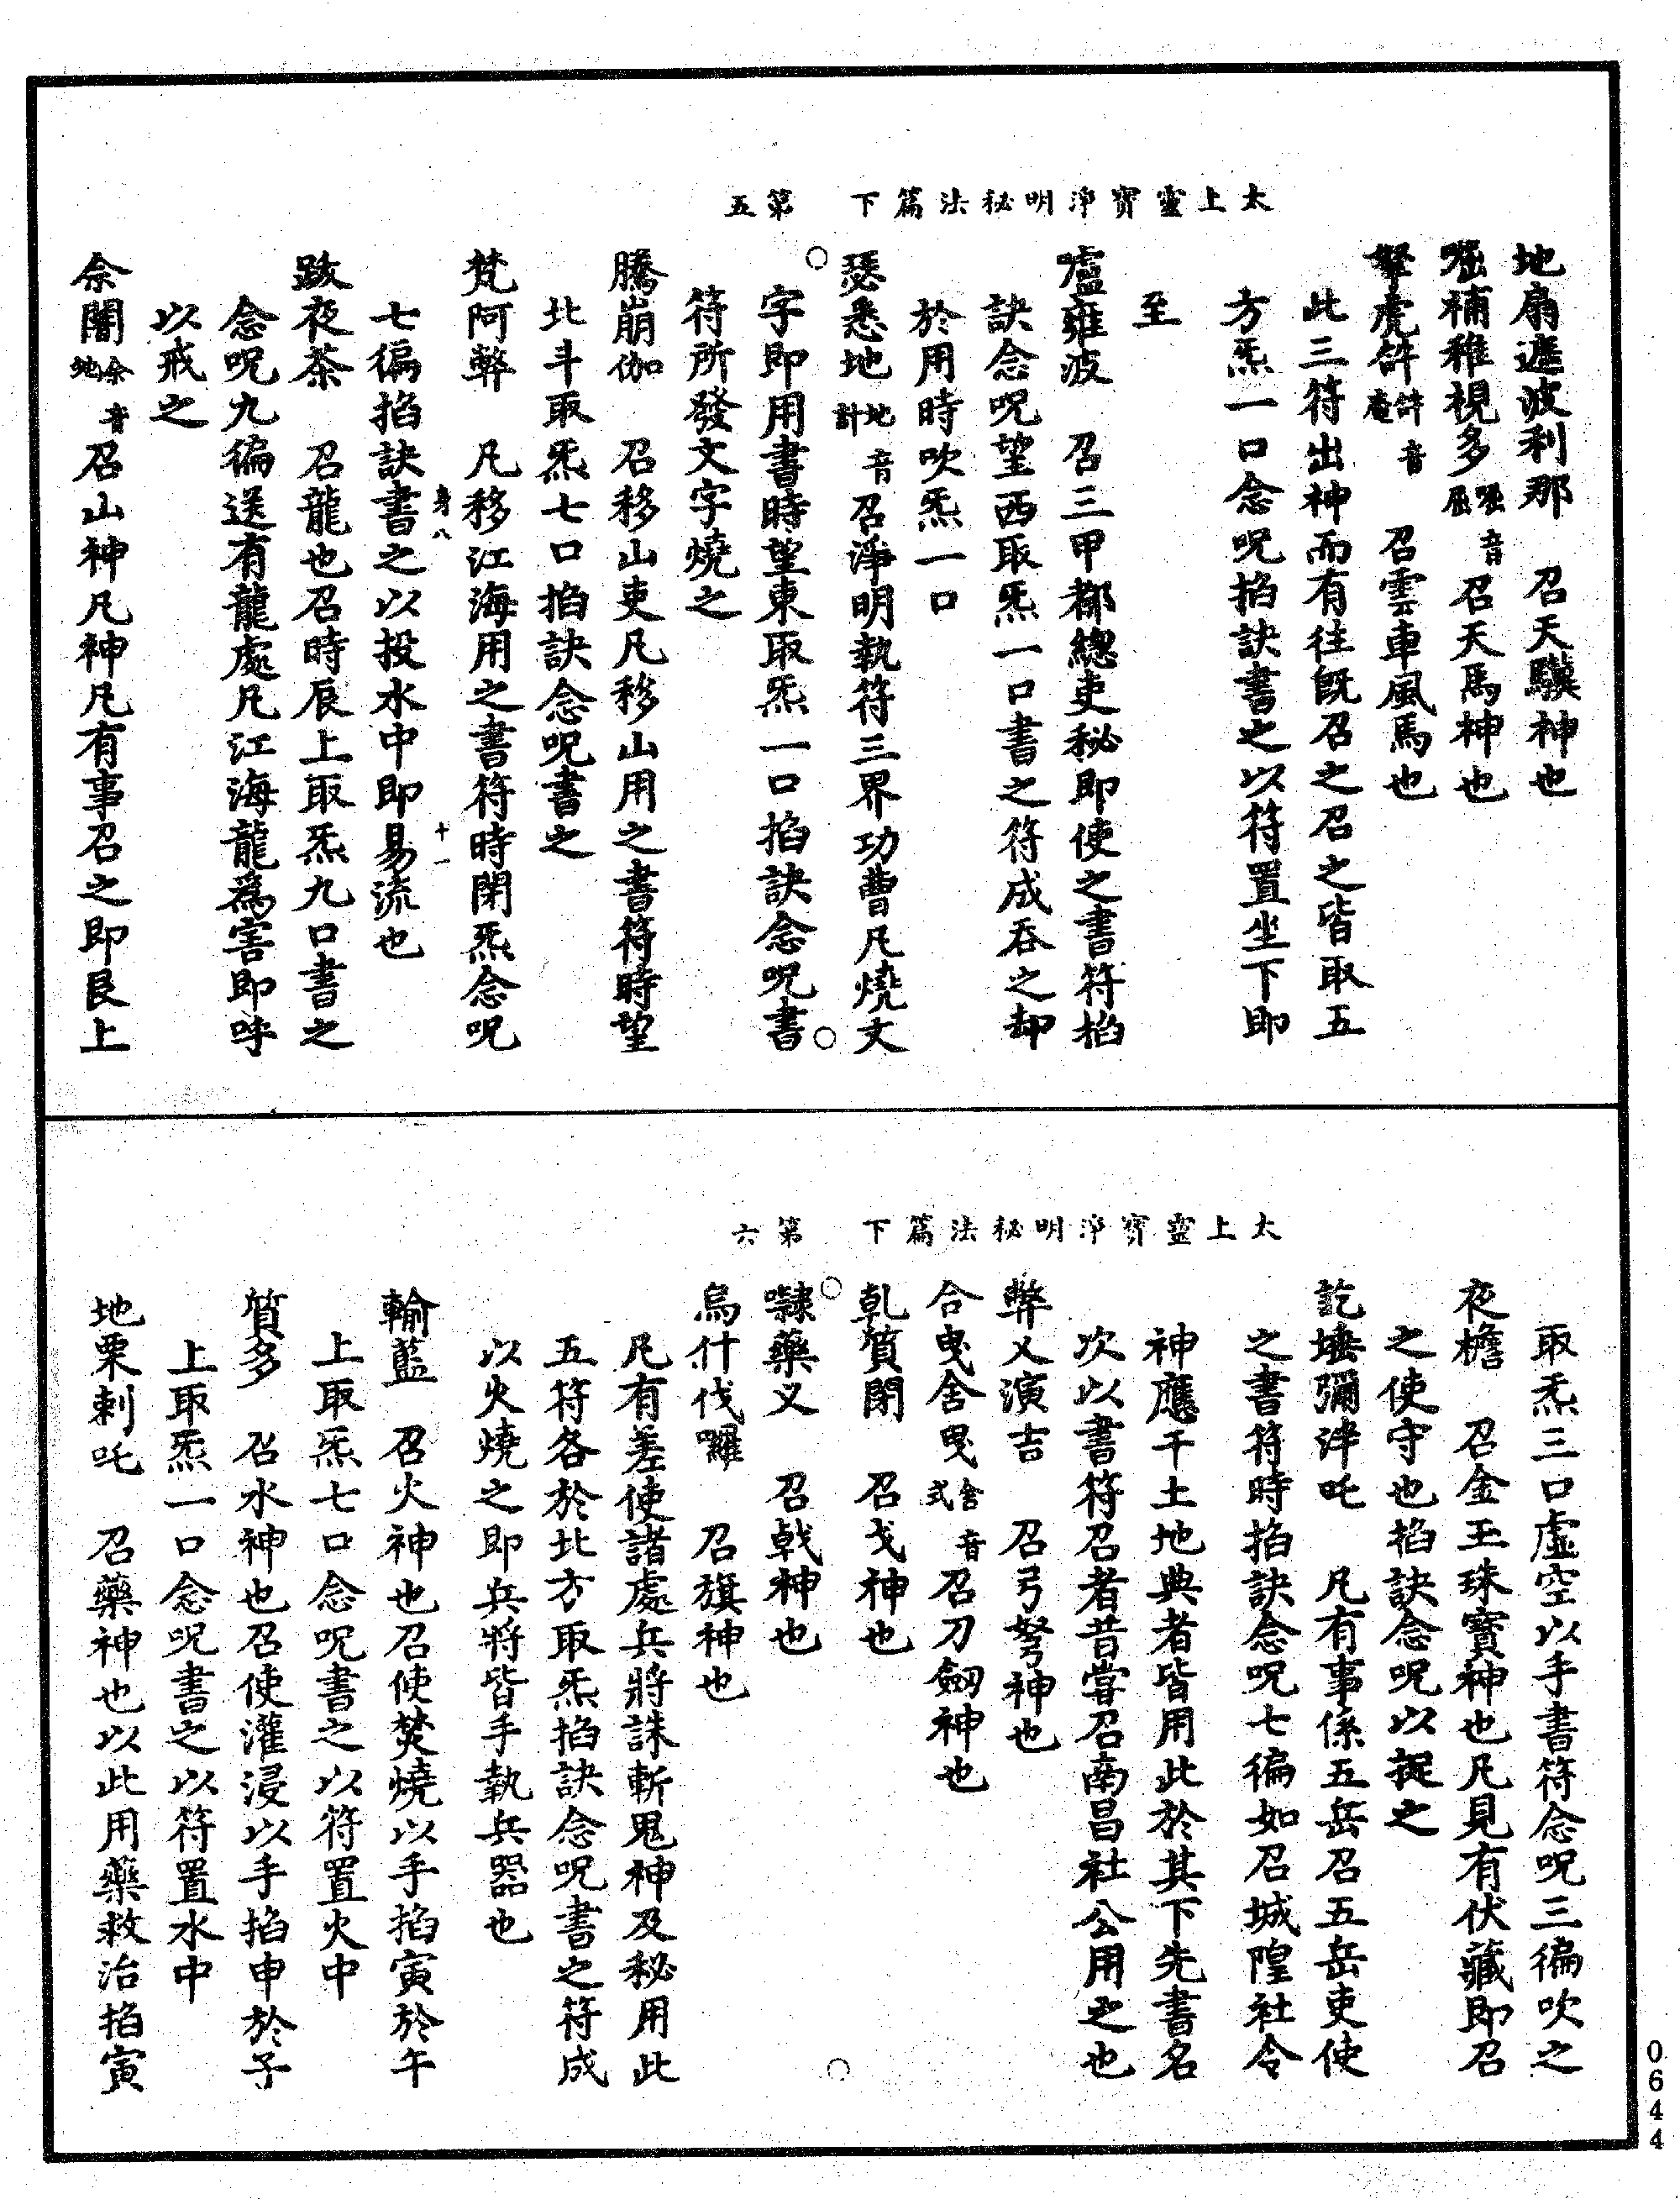 太上靈寶淨明秘法篇下 第五
地扇遮波利那 召天驥神也
𡀙補稚視多𡀙音屈 召天馬神也
孥虎䛟䛟音庵 召雲車風馬也
此三符出神而有往旣召之召之皆取五
方炁一口念呪掐訣書之以符置坐下即
至
嚧雍波 召三甲都總吏秘即使之書符掐
訣念呪望西取炁一口書之符成吞之却
於用時吹炁一口
瑟悉地地音計 召淨明執符三界功曹凡燒文
字即用書時望東取炁一口掐訣念呪書
符所發文字燒之
騰崩伽 召移山吏凡移山用之書符時望
北斗取炁七口掐訣念呪書之
梵阿弊 凡移江海用之書符時閉炁念呪
七徧掐訣書之以投水中即易流也
身八 十一
跋夜茶 召龍也召時辰上取炁九口書之
念呪九徧送有龍處凡江海龍爲害即呼
以戒之
佘闍佘音地 召山神凡神凡有事召之即艮上
太上靈寶淨明秘法篇下 第六
取炁三口虛空以手書符念呪三徧吹之
夜檐 召金玉珠寶神也凡見有伏藏即召
之使守也掐訣念呪以捉之
訖埵彌泮吒 凡有事係五岳召五岳吏使
之書符時掐訣念呪七徧如召城隍社令
神應干土地典者皆用此於其下先書名
次以書符召者昔嘗召南昌社公用之也
弊乂演吉 召弓弩神也
合曳舍曳舍音式 召刀劒神也
乹質閉 召戈神也
㘑藥义 召戟神也
烏什伐囉 召旗神也
凡有差使諸處兵將誅斬鬼神及秘用此
五符各於北方取炁掐訣念呪書之符成
以火燒之即兵將皆手執兵器也
輸藍 召火神也召使焚燒以手掐寅於午
上取炁七口念呪書之以符置火中
質多 召水神也召使灌浸以手掐申於子
上取炁一口念呪書之以符置水中
地栗剌吒 召藥神也以此用藥救治掐寅
0644